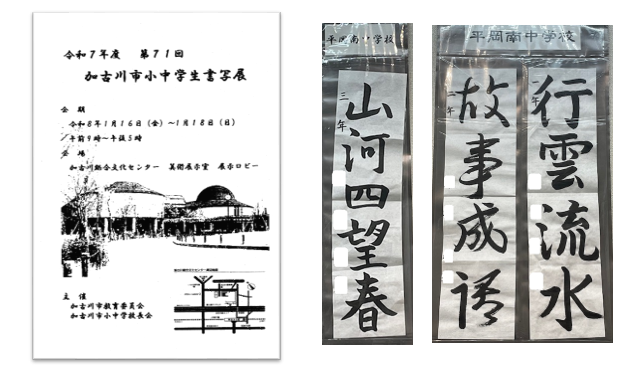 令和7年度 第71回
加古川市小中学生書写展
会 期
令和8年1月16日(金)～1月18日(日)
午前9時～午後5時
会 場
加古川総合文化センター 美術展示室 展示ロビー
主 催
加古川市教育委員会
加古川市小中学校長会
平岡南中学校
三年
山河四望春
平岡南中学校
一年
行雲流水
二年
故事成語